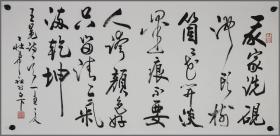 我家洗硯
池頭樹
箇々花開淡
墨痕不要
人誇顏色好
只留清氣
滿乾坤
王冕詩